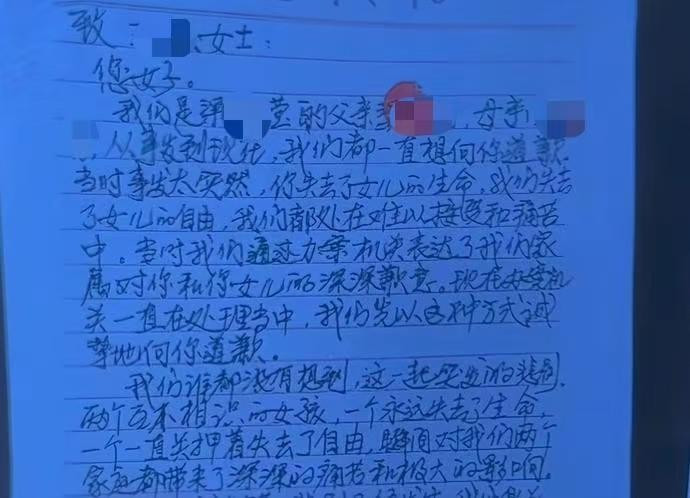 致: 女士:
您好。
我们是谭 莹的父亲 ,母亲
,从事发到现在,我们都一直想向你道歉
当时事发太突然,你失去了女儿的生命,我们失去
了女儿的自由,我们都处在难以接受和痛苦
中。当时我们通过办案机关表达了我们家
属对你和你女儿的深深歉意。现在办案机
关一直在处理当中,我们先以这种方式诚
挚地向你道歉。
我们谁都没有想到,这一起突发的悲剧,
两个互不相识的女孩,一个永远失去了生命,
一个一直关押着失去了自由,瞬间对我们两个
家庭都带来了深深的痛苦和极大的影响。